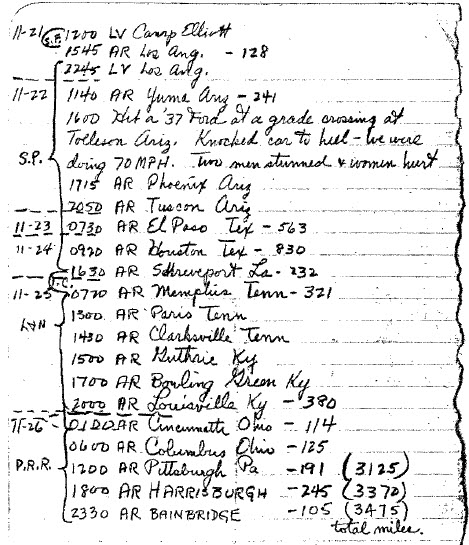 11-21 S.F. 1200 LV Camp Elliott
1545 AR Los Ang. - 128
2245 LV Los Ang.
11-22 1140 AR Yuma Ariz - 241
1600 Hit a '37 Ford at a grade crossing at
Tolleson Ariz. Knocked car to hell - we were
S.P. doing 70 MPH. Two men stunned & women hurt
1715 AR Phoenix Ariz
2050 AR Tuscon Ariz
11-23 0730 AR El Paso Tex - 563
11-24 0920 AR Houston Tex - 830
1630 AR Schreveport La - 232
11-25 I.C. 0720 AR Memphis Tenn - 321
L&N 1300 AR Paris Tenn
1430 AR Clarksville Tenn
1500 AR Guthrie Ky
1700 AR Bowling Green Ky
2000 AR Louisville Ky - 380
11-26 0100 AR Cincinnatti Ohio - 114
0600 AR Columbus Ohio - 125
P.R.R. 1200 AR Pittsburgh Pa - 191 (3125)
1800 AR HARRISBURGH - 245 (3370)
2330 AR BAINBRIDGE - 105 (3475)
total miles.